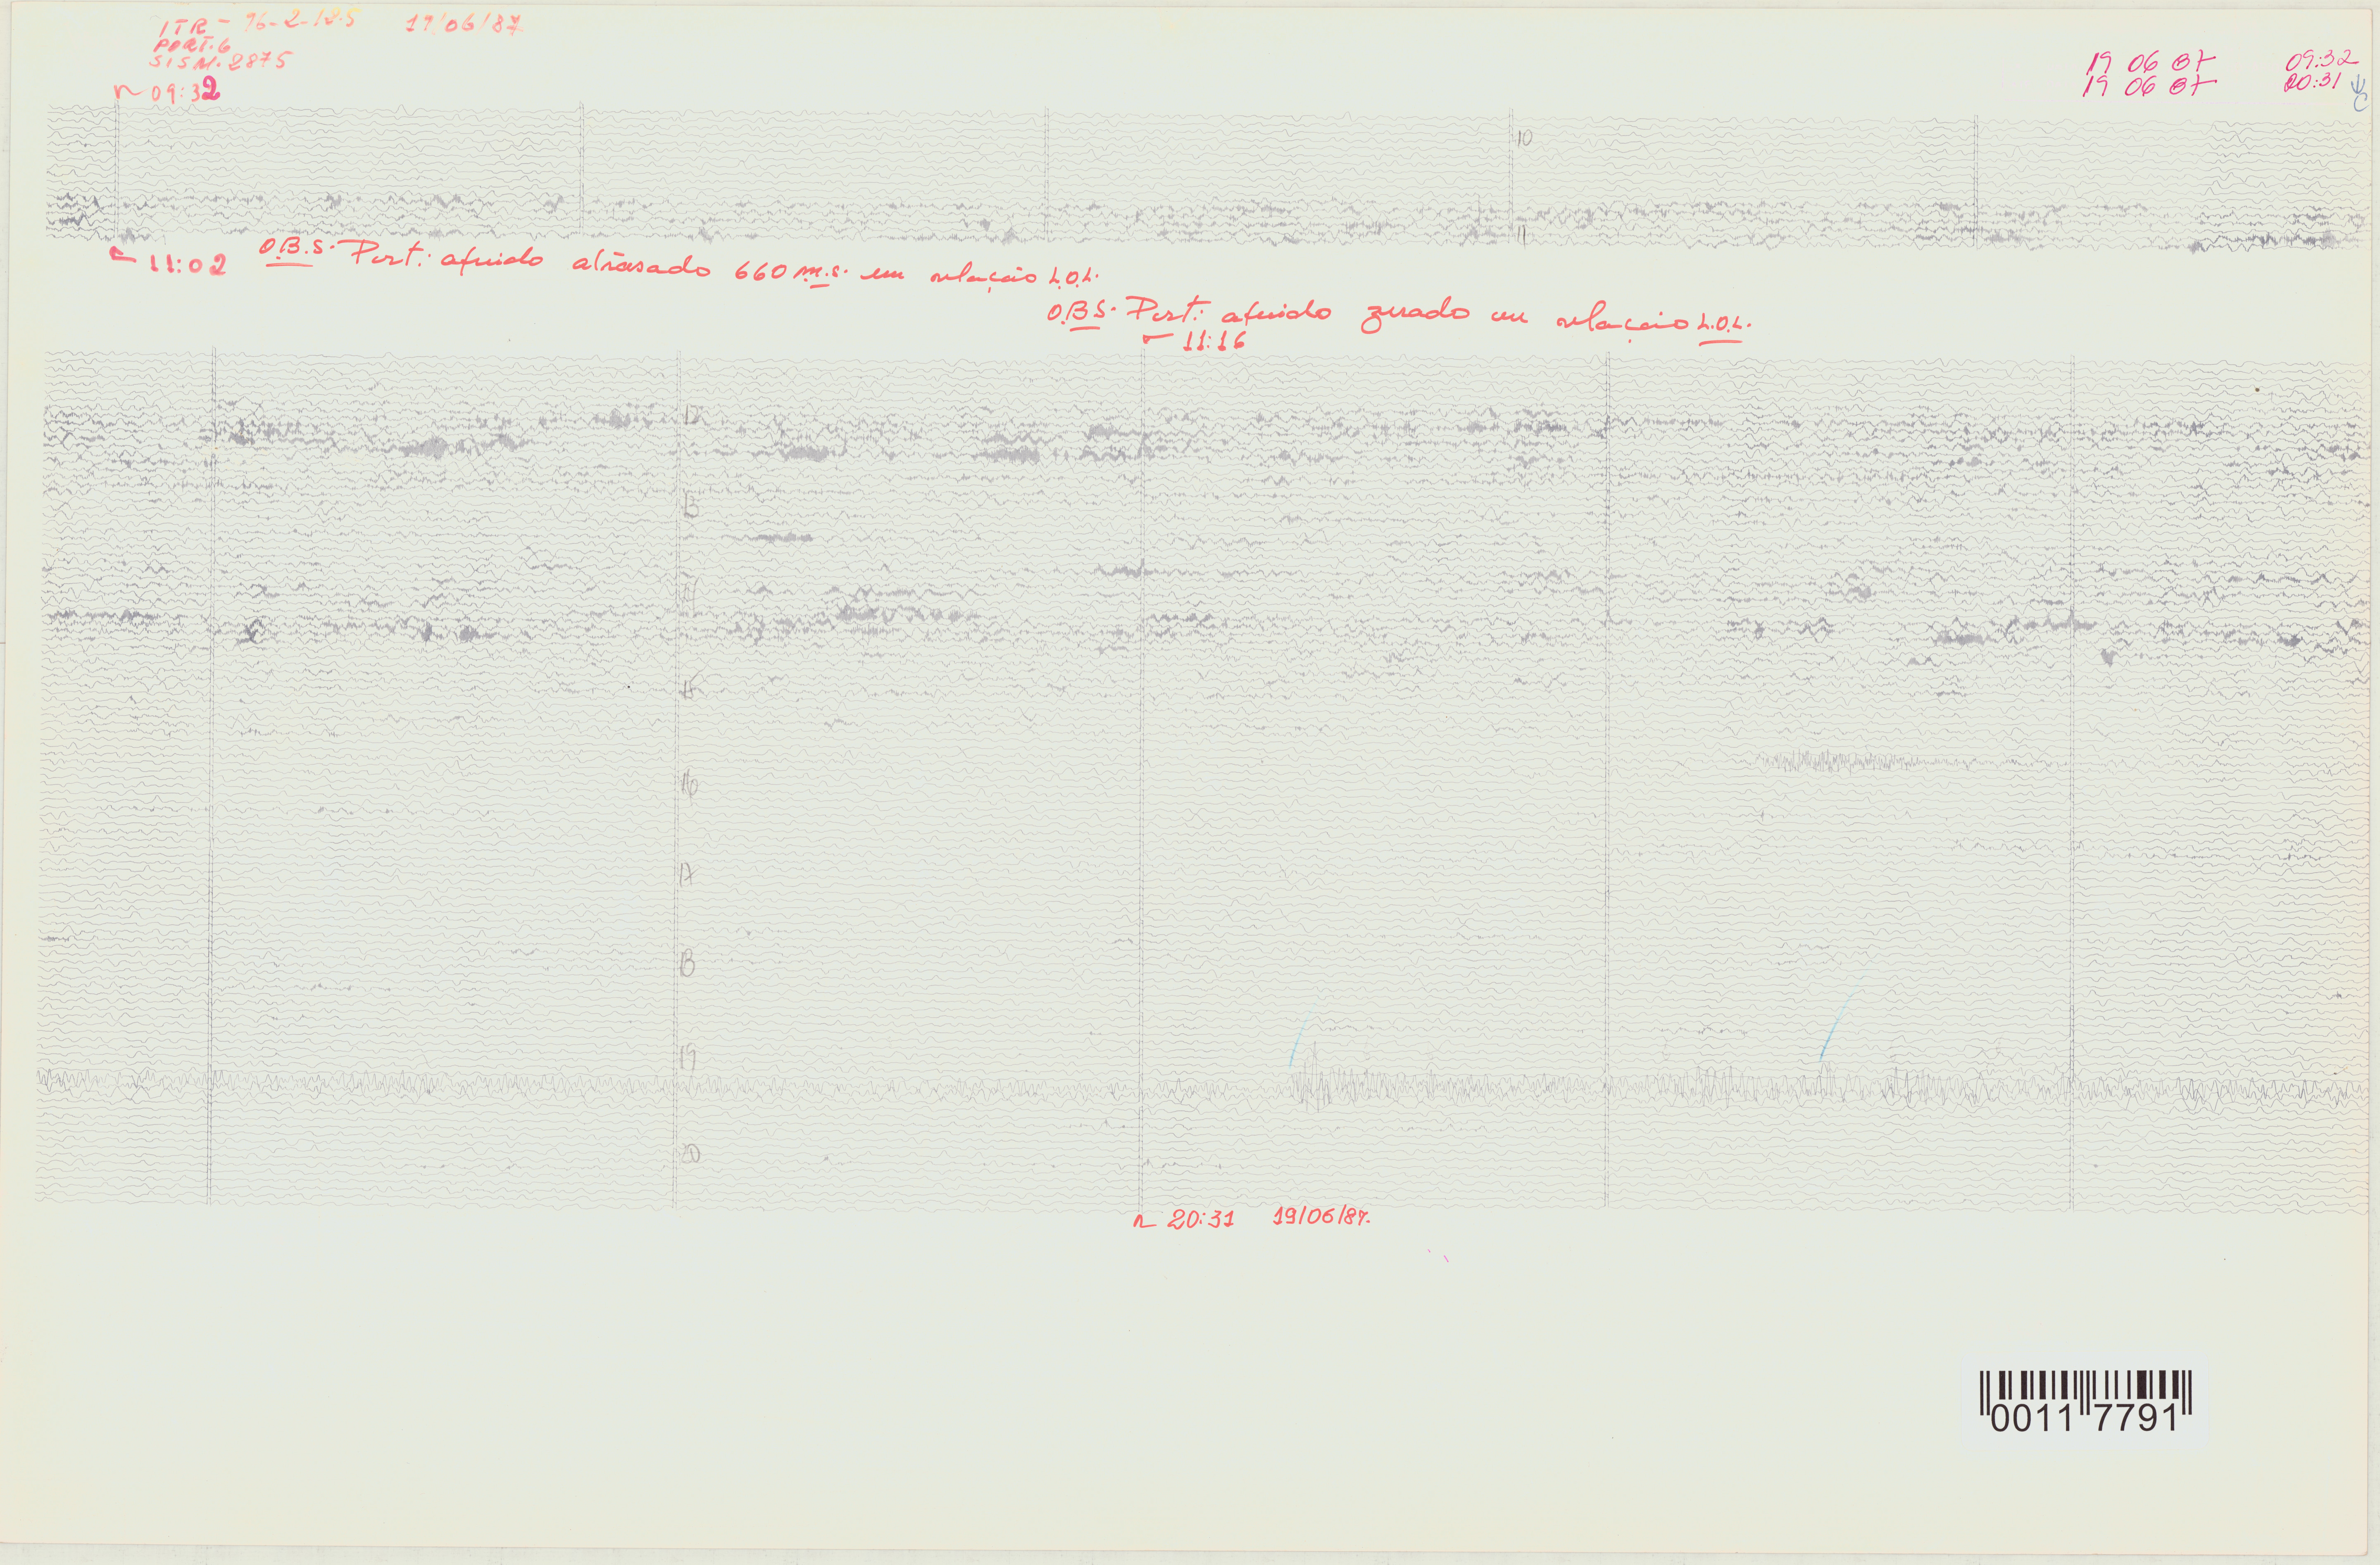 ITR - 76-2-12.5 19/06/87
PORT. 6
SISM. 2875
09:32
19 06 87 09:32
19 06 87 20:31
10
11
11:02 O.B.S. Port. aferido atrasado 660 m.s. em relação L.O.L.
O.B.S. Port. aferido zerado em relação L.O.L.
11:16
12
13
14
15
16
17
18
19
20
20:31 19/06/87.
0011 7791